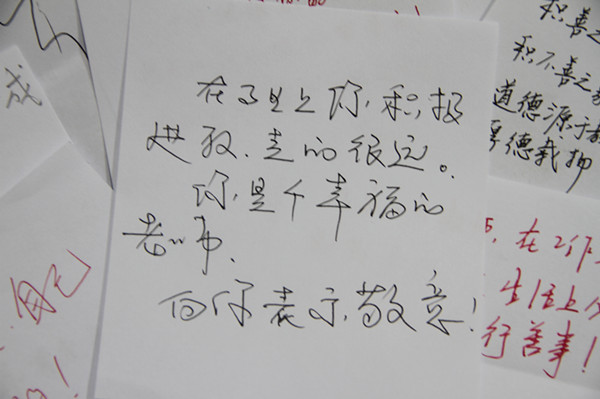 在事业上你,积极
进取,走的很远。
你,是个幸福的
老师,
向你表示敬意!
成
自己
！
积善之
积不善之
道德源于
厚德载物
在工作
生活上
行善事!